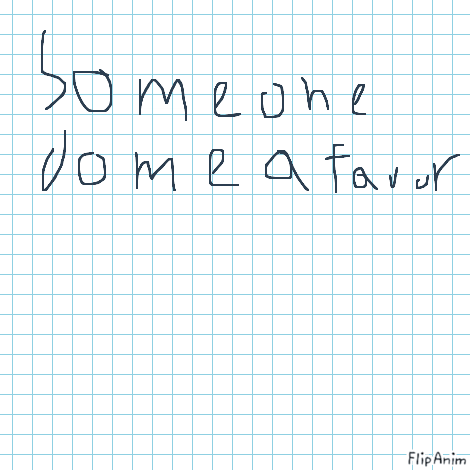 Someone
do me a favor
FlipAnim